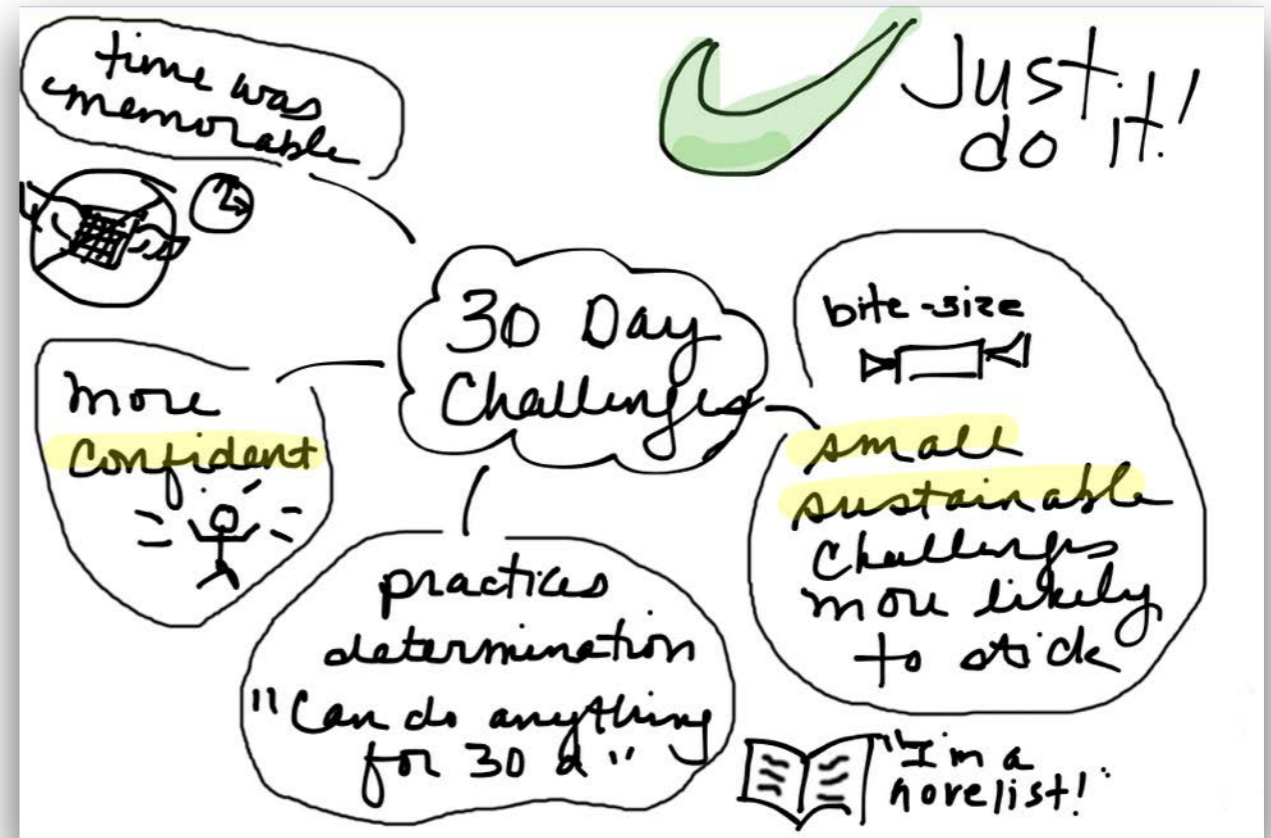 time was
memorable
Just
do it!
30 Day
Challenges
bite-size
small
sustainable
challenges
more likely
to stick
more
confident
practices
determination
"Can do anything
for 30 d"
"I'm a
novelist!